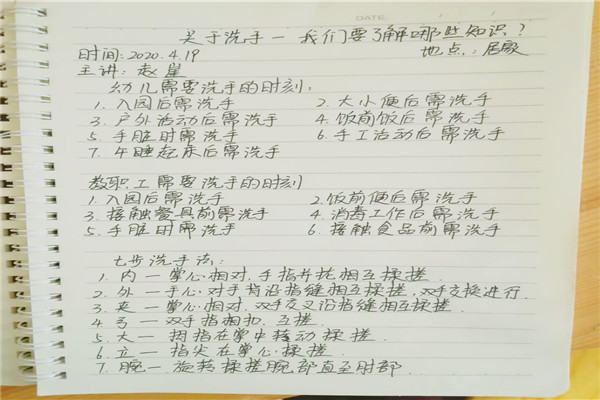 DATE
关于洗手一我们要了解哪些知识?
时间:2020.4.19 地点:居家
主讲:赵崖
幼儿需要洗手的时刻:
1.入园后需洗手 2.大小便后需洗手
3.户外活动后需洗手 4.饭前饭后需洗手
5.手脏时需洗手 6.手工活动后需洗手
7.午睡起床后需洗手
教职工需要洗手的时刻
1.入园后需洗手 2.饭前便后需洗手
3.接触餐具前需洗手 4.消毒工作后需洗手
5.手脏时需洗手 6.接触食品前需洗手
七步洗手法:
1.内一掌心相对.手指并拢相互揉搓.
2.外一手心对手背沿指缝相互揉搓.双手交换进行.
3.夹一掌心相对.双手交叉沿指缝相互揉搓.
4.弓一双手指相扣.互搓.
5.大一拇指在掌中转动揉搓.
6.立一指尖在掌心揉搓.
7.腕一旋转揉搓腕部直至肘部.